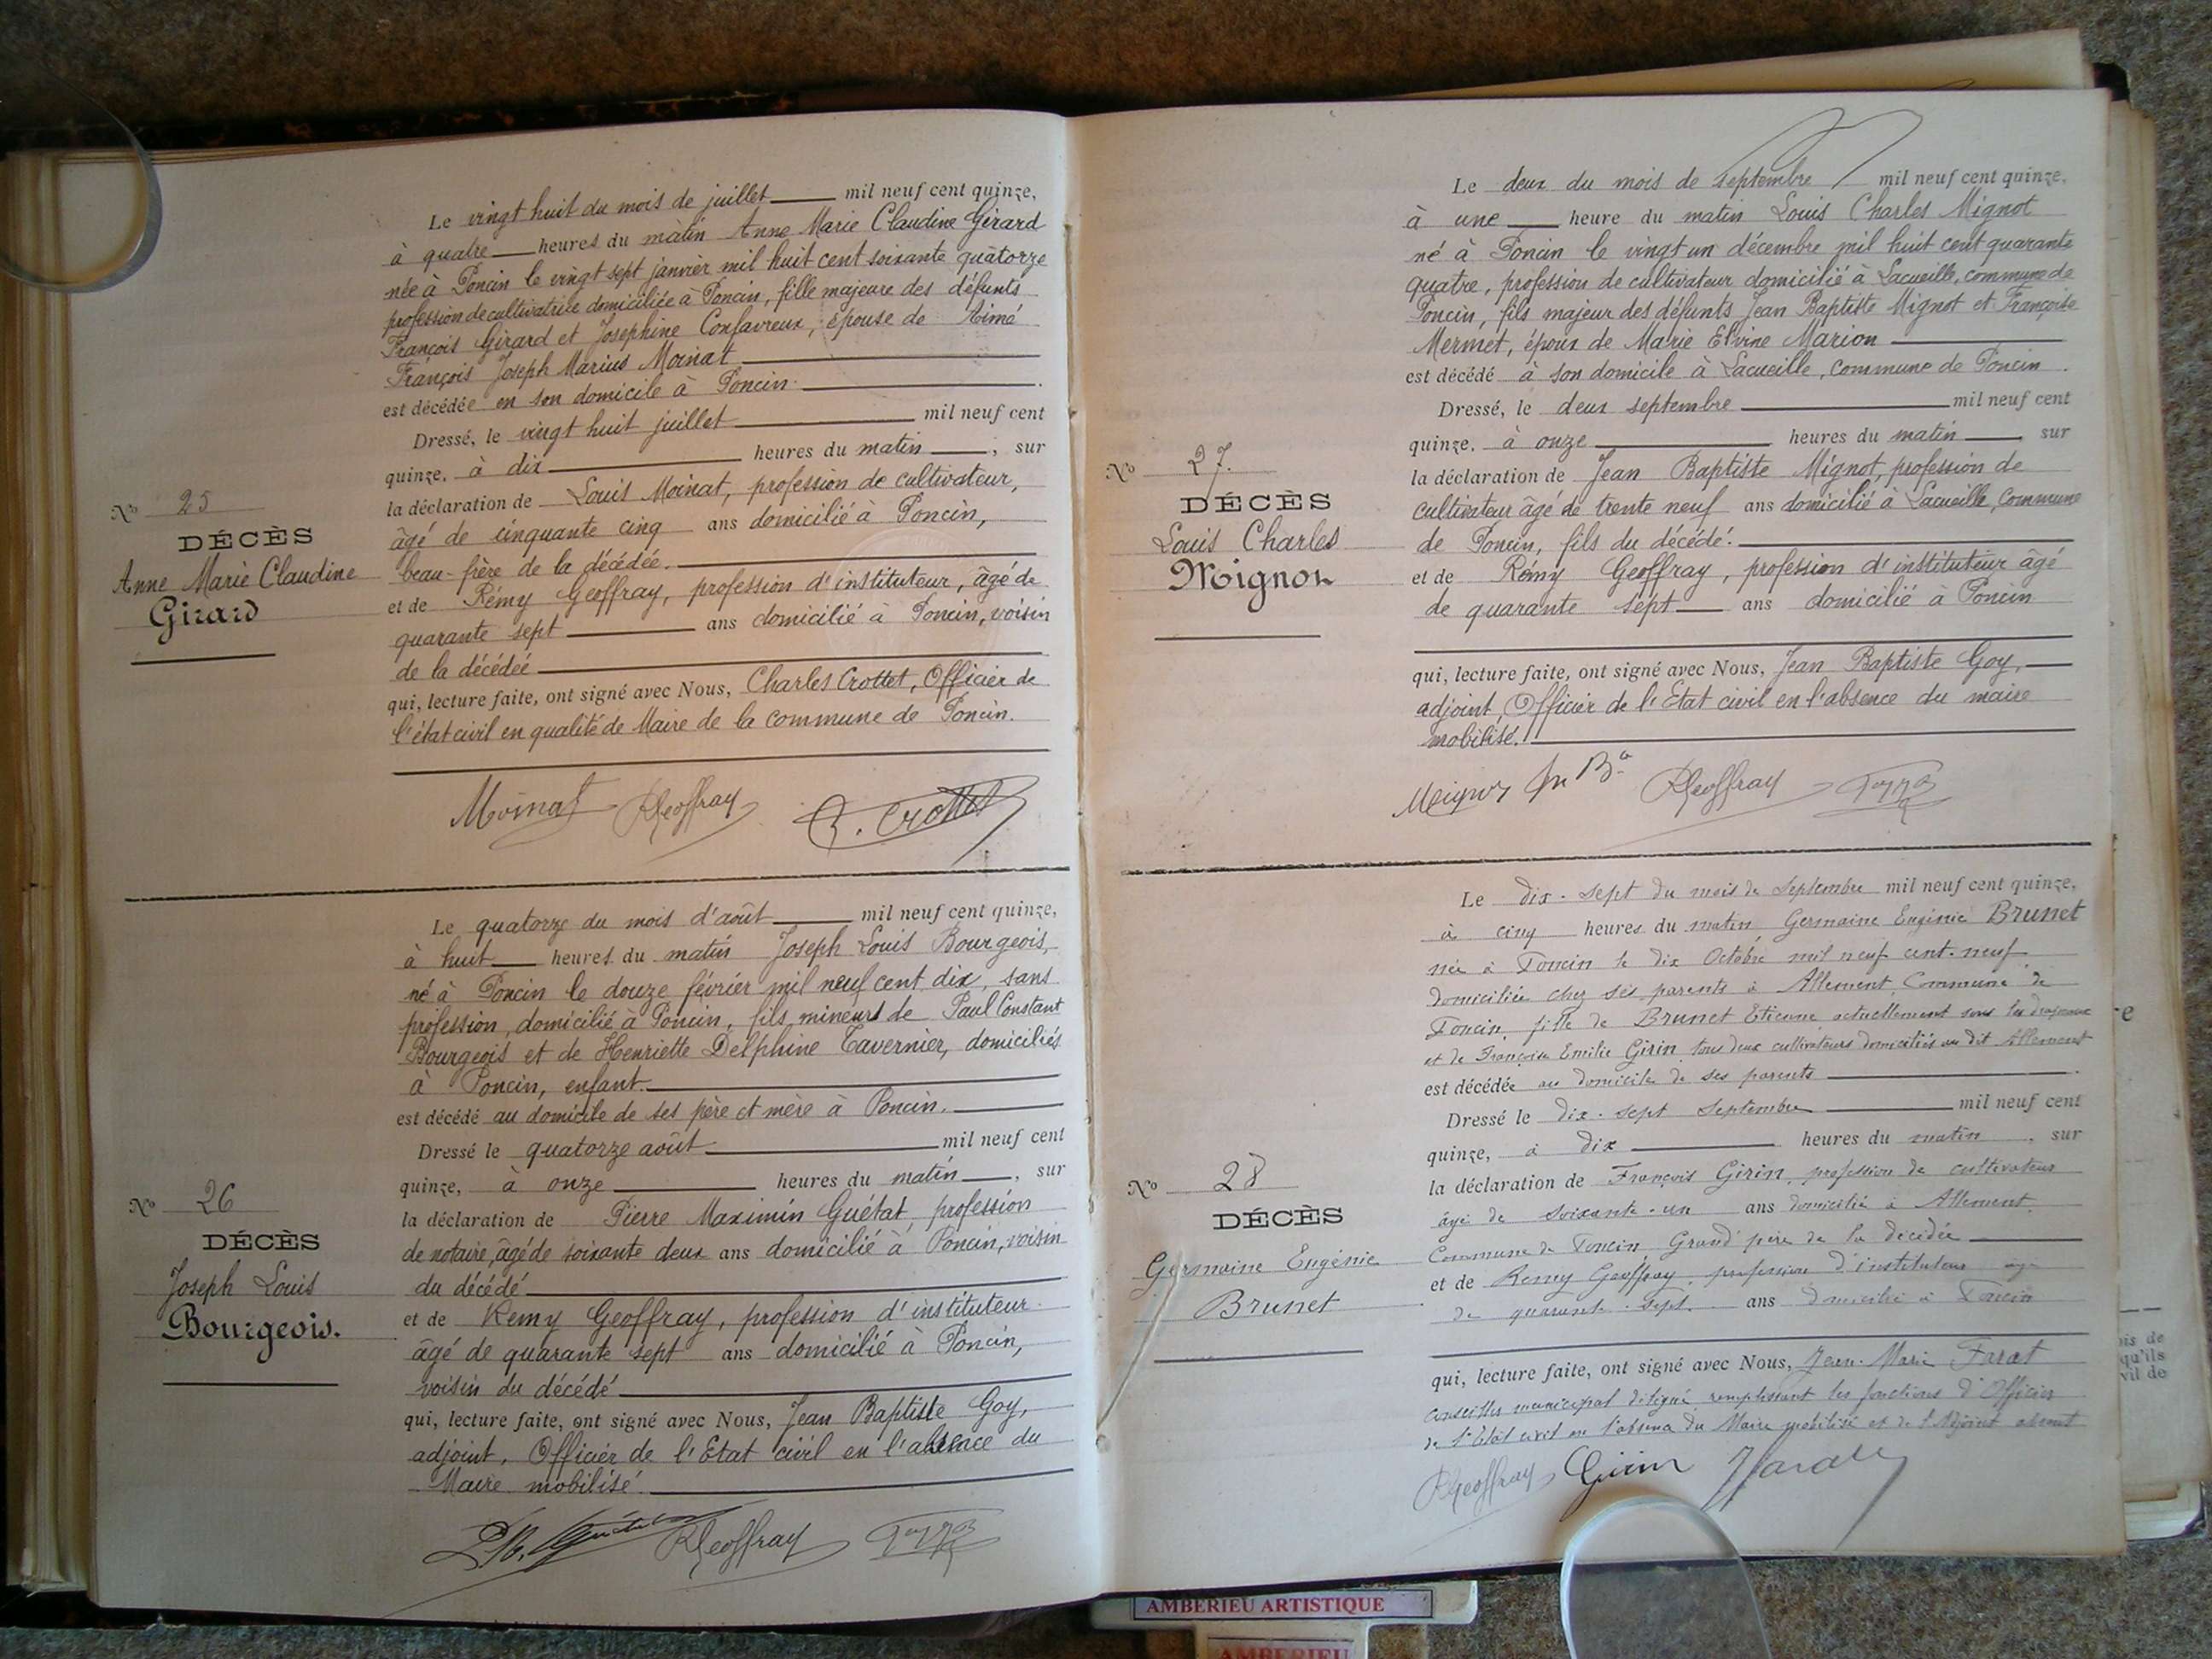 Le vingt huit du mois de juillet mil neuf cent quinze,
à quatre heures du matin Anne Marie Claudine Girard
née à Poncin le vingt sept janvier mil huit cent soixante quatorze
profession de cultivatrice domiciliée à Poncin, fille majeure des défunts
François Girard et Josephine Confavreux, épouse de Aimé
François Joseph Marius Moinat
est décédée en son domicile à Poncin.
Dressé, le vingt huit juillet mil neuf cent
quinze, à dix heures du matin, sur
la déclaration de Louis Moinat, profession de cultivateur,
âgé de cinquante cinq ans domicilié à Poncin,
beau-frère de la décédée.
et de Rémy Geoffray, profession d'instituteur, âgé de
quarante sept ans domicilié à Poncin, voisin
de la décédée
qui, lecture faite, ont signé avec Nous, Charles Crottet, Officier de
l'état civil en qualité de Maire de la commune de Poncin.
Moinat RGeoffray C. Crottet
No 25
DÉCÈS
Anne Marie Claudine
Girard
Le quatorze du mois d'août mil neuf cent quinze,
à huit heures du matin Joseph Louis Bourgeois,
né à Poncin le douze février mil neuf cent dix, sans
profession, domicilié à Poncin, fils mineurs de Paul Constant
Bourgeois et de Henriette Delphine Tavernier, domiciliés
à Poncin, enfant.
est décédé au domicile de ses père et mère à Poncin.
Dressé le quatorze août mil neuf cent
quinze, à onze heures du matin, sur
la déclaration de Pierre Maximin Guétat, profession
de notaire, âgé de soixante deux ans domicilié à Poncin, voisin
du décédé
et de Remy Geoffray, profession d'instituteur
âgé de quarante sept ans domicilié à Poncin,
voisin du décédé
qui, lecture faite, ont signé avec Nous, Jean Baptiste Goy,
adjoint, Officier de l'Etat civil en l'absence du
Maire mobilisé.
RGeoffray
No 26
DÉCÈS
Joseph Louis
Bourgeois.
Le deux du mois de septembre mil neuf cent quinze,
à une heure du matin Louis Charles Mignot
né à Poncin le vingt un décembre mil huit cent quarante
quatre, profession de cultivateur domicilié à Lacueille, commune de
Poncin, fils majeur des défunts Jean Baptiste Mignot et Françoise
Mermet, époux de Marie Elvine Marion
est décédé à son domicile à Lacueille, commune de Poncin.
Dressé, le deux septembre mil neuf cent
quinze, à onze heures du matin, sur
la déclaration de Jean Baptiste Mignot, profession de
cultivateur âgé de trente neuf ans domicilié à Lacueille, commune
de Poncin, fils du décédé.
et de Rémy Geoffray, profession d'instituteur âgé
de quarante sept ans domicilié à Poncin
qui, lecture faite, ont signé avec Nous, Jean Baptiste Goy,
adjoint, Officier de l'Etat civil en l'absence du maire
mobilisé.
RGeoffray
No 27.
DÉCÈS
Louis Charles
Mignot
Le dix-sept du mois de Septembre mil neuf cent quinze,
à cinq heures du matin Germaine Eugénie Brunet
née à Poncin le dix Octobre mil neuf cent-neuf
domiciliée chez ses parents à Allement Commune de
Poncin, fille de Brunet Etienne actuellement sous les drapeaux
et de Françoise Emilie Girin tous deux cultivateurs domiciliés au dit Allement
est décédée au domicile de ses parents
Dressé le dix-sept Septembre mil neuf cent
quinze, à dix heures du matin, sur
la déclaration de François Girin, profession de cultivateur
âgé de soixante-un ans domicilié à Allement
Commune de Poncin, Grand père de la décédée
et de Remy Geoffray, profession d'instituteur âgé
de quarante-sept ans domicilié à Poncin
qui, lecture faite, ont signé avec Nous, Jean-Marie Farat
conseiller municipal désigné remplissant les fonctions d'Officier
de l'Etat civil en l'absence du Maire mobilisé et de l'Adjoint absent
RGeoffray Girin
No 28
DÉCÈS
Germaine Eugénie
Brunet
ois de
qu'ils
vil de
AMBERIEU ARTISTIQUE
AMBERIEU